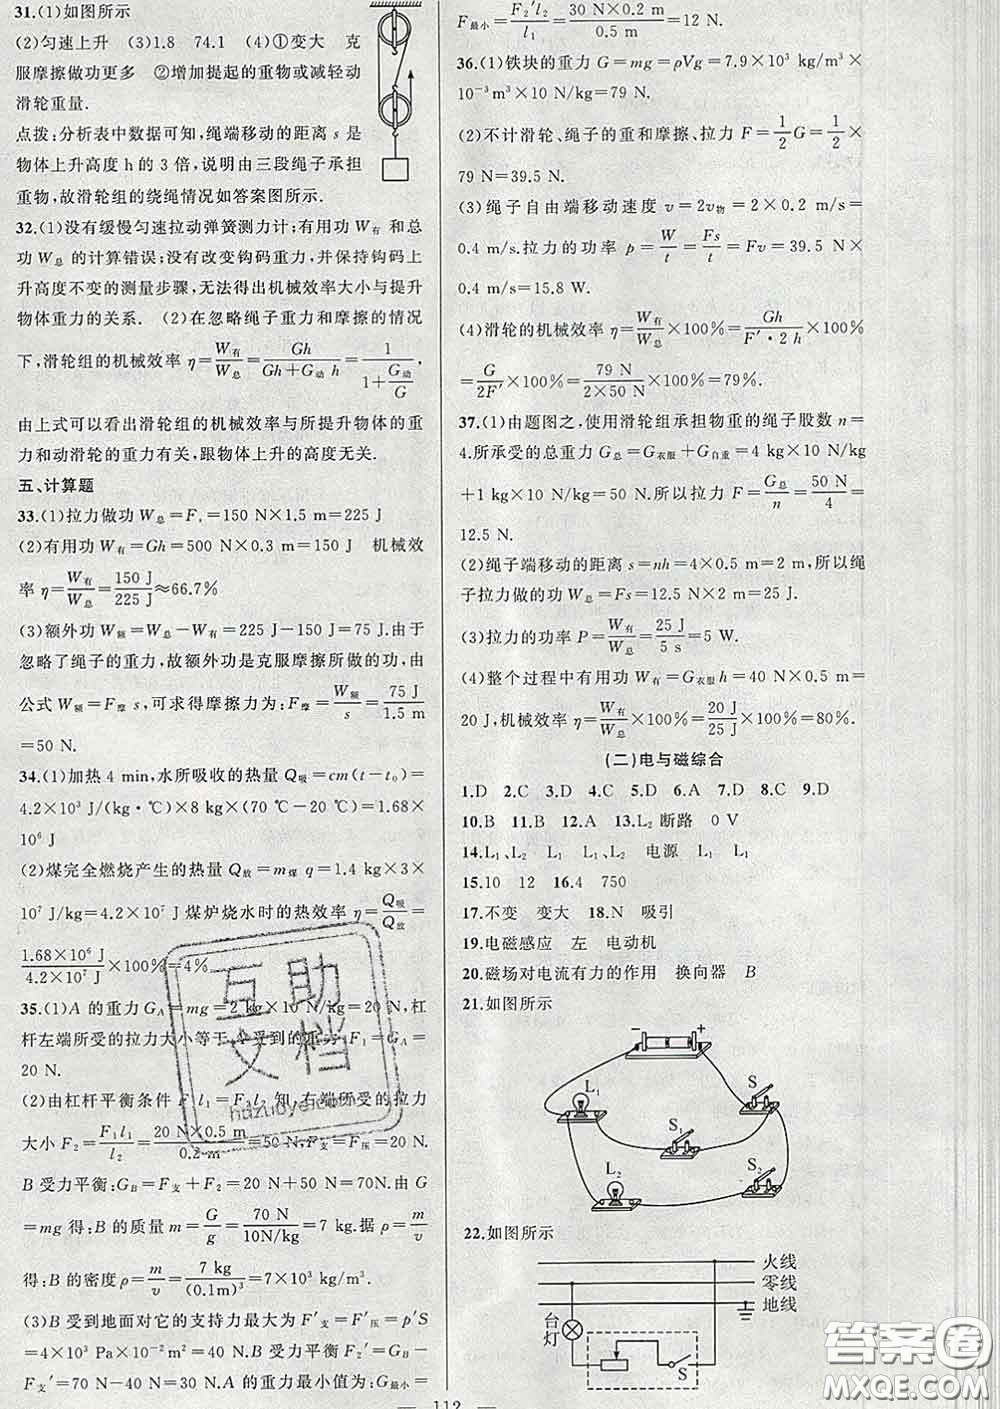 31.(1)如图所示
(2)匀速上升 (3)1.8 74.1 (4)①变大 克
服摩擦做功更多 ②增加提起的重物或减轻动
滑轮重量.
点拨:分析表中数据可知,绳端移动的距离 s 是
物体上升高度 h 的 3 倍,说明由三段绳子承担
重物,故滑轮组的绕绳情况如答案图所示.
32.(1)没有缓慢匀速拉动弹簧测力计;有用功 W有 和总
功 W总 的计算错误;没有改变钩码重力,并保持钩码上
升高度不变的测量步骤,无法得出机械效率大小与提升
物体重力的关系. (2)在忽略绳子重力和摩擦的情况
下,滑轮组的机械效率 η=W有/W总=Gh/(Gh+G动 h)=1/(1+G动/G),
由上式可以看出滑轮组的机械效率与所提升物体的重
力和动滑轮的重力有关,跟物体上升的高度无关.
五、计算题
33.(1)拉力做功 W总=Fs=150 N×1.5 m=225 J
(2)有用功 W有=Gh=500 N×0.3 m=150 J 机械效
率 η=W有/W总=150 J/225 J≈66.7%
(3)额外功 W额=W总-W有=225 J-150 J=75 J.由于
忽略了绳子的重力,故额外功是克服摩擦所做的功,由
公式 W额=F摩 s,可求得摩擦力为:F摩=W额/s=75 J/1.5 m
=50 N.
34.(1)加热 4 min,水所吸收的热量 Q吸=cm(t-t₀)=
4.2×10³ J/(kg·℃)×8 kg×(70 ℃-20 ℃)=1.68×
10⁶ J
(2)煤完全燃烧产生的热量 Q放=m煤 q=1.4 kg×3×
10⁷ J/kg=4.2×10⁷ J 煤炉烧水时的热效率 η=Q吸/Q放=
1.68×10⁶ J/4.2×10⁷ J×100%=4%
35.(1)A 的重力 G_A=mg=2 kg×10 N/kg=20 N,杠
杆左端所受的拉力大小等于 A 受到的重力 F₁=G_A=
20 N.
(2)由杠杆平衡条件 F₁l₁=F₂l₂ 知,右端所受的拉力
大小 F₂=F₁l₁/l₂=20 N×0.5 m/0.2 m=50 N,F支=F压=20 N.
B 受力平衡:G_B=F支+F₂=20 N+50 N=70 N.由 G
=mg 得:B 的质量 m=G/g=70 N/10N/kg=7 kg.据 ρ=m/v
得:B 的密度 ρ=m/v=7 kg/(0.1m)³=7×10³ kg/m³.
(3)B 受到地面对它的支持力最大为 F′支=F′压=p′S
=4×10³ Pa×10⁻²m²=40 N.B 受力平衡 F′₂=G_B-
F支′=70 N-40 N=30 N.A 的重力最小值为:G最小=
F最小=F₂′l₂/l₁=30 N×0.2 m/0.5 m=12 N.
36.(1)铁块的重力 G=mg=ρVg=7.9×10³ kg/m³×
10⁻³m³×10 N/kg=79 N.
(2)不计滑轮、绳子的重和摩擦、拉力 F=1/2G=1/2×
79 N=39.5 N.
(3)绳子自由端移动速度 v=2v物=2×0.2 m/s=
0.4 m/s,拉力的功率 p=W/t=Fs/t=Fv=39.5 N×
0.4 m/s=15.8 W.
(4)滑轮的机械效率 η=W有/W总×100%=Gh/(F′·2 h)×100%
=G/2F′×100%=79 N/(2×50 N)×100%=79%.
37.(1)由题图之,使用滑轮组承担物重的绳子股数 n=
4.所承受的总重力 G总=G衣服+G自重=4 kg×10 N/kg
+1 kg×10 N/kg=50 N.所以拉力 F=G总/n=50 N/4=
12.5 N.
(2)绳子端移动的距离 s=nh=4×0.5 m=2 m,所以绳
子拉力做的功 W总=Fs=12.5 N×2 m=25 J.
(3)拉力的功率 P=W有/W总=25 J/5 s=5 W.
(4)整个过程中有用功 W有=G衣服h=40 N×0.5 m=
20 J,机械效率 η=W有/W总×100%=20 J/25 J×100%=80%.
(二)电与磁综合
1.D 2.C 3.D 4.C 5.D 6.A 7.D 8.C 9.D
10.B 11.B 12.A 13.L₂ 断路 0 V
14.L₁、L₂ L₁ L₁ L₂ 电源 L₁ L₁
15.10 12 16.4 750
17.不变 变大 18.N 吸引
19.电磁感应 左 电动机
20.磁场对电流有力的作用 换向器 B
21.如图所示
- +
L₁ S
S₁
L₂ S₂
22.如图所示
火线
零线
地线
台灯
S
112
互助文档
答案圈
MXQE.COM